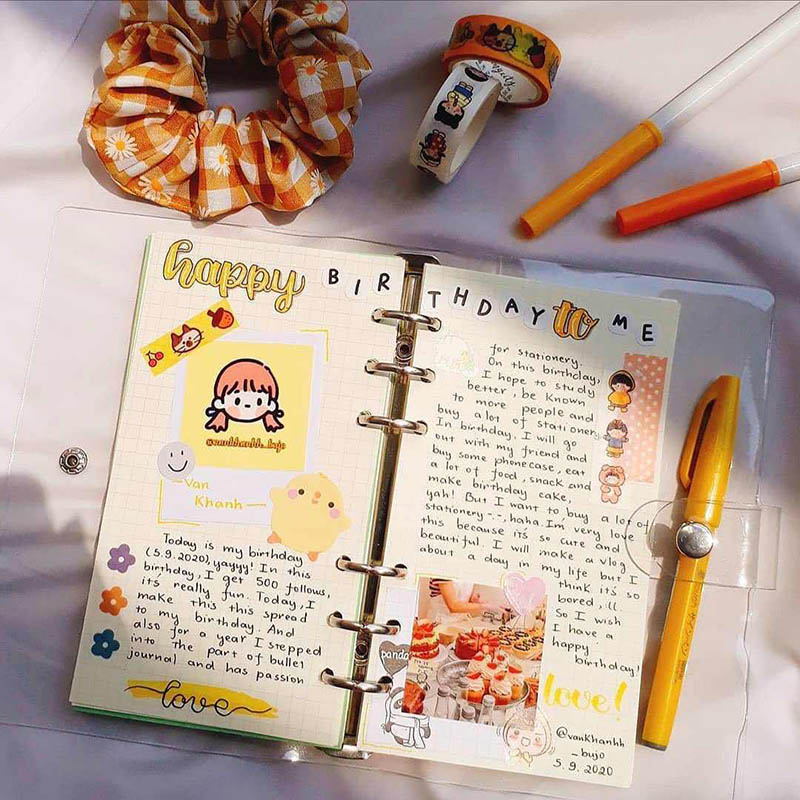 happy BIRTHDAY to ME
@vankhanhh_bujo
Van
Khanh
Today is my birthday
(5.9.2020), yayyy! In this
birthday, I get 500 follows,
it's really fun. Today, I
make this this spread
to my birthday. And
also for a year I stepped
into the part of bullet
journal and has passion
love
for stationery.
On this birthday,
I hope to study
better, be known
to more people and
buy a lot of stationery
In birthday. I will go
out with my friend and
buy some phonecase, eat
a lot of food, snack and
make birthday cake,
yah! But I want to buy a lot of
stationery --, haha. I'm very love
this because it's so cute and
beautiful. I will make a vlog
about a day in my life but I
think it's so
bored, ill.
So I wish
I have a
happy
birthday!
panda
love!
@vankhanhh
_bujo
5.9.2020